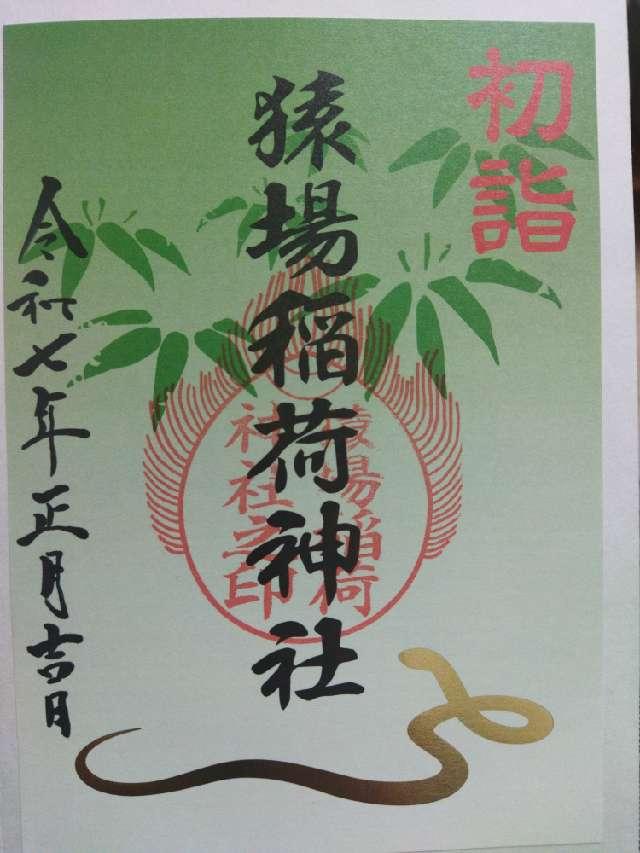 初詣
猿場稲荷神社
猿場稲荷
神社玄印
令和七年正月吉日